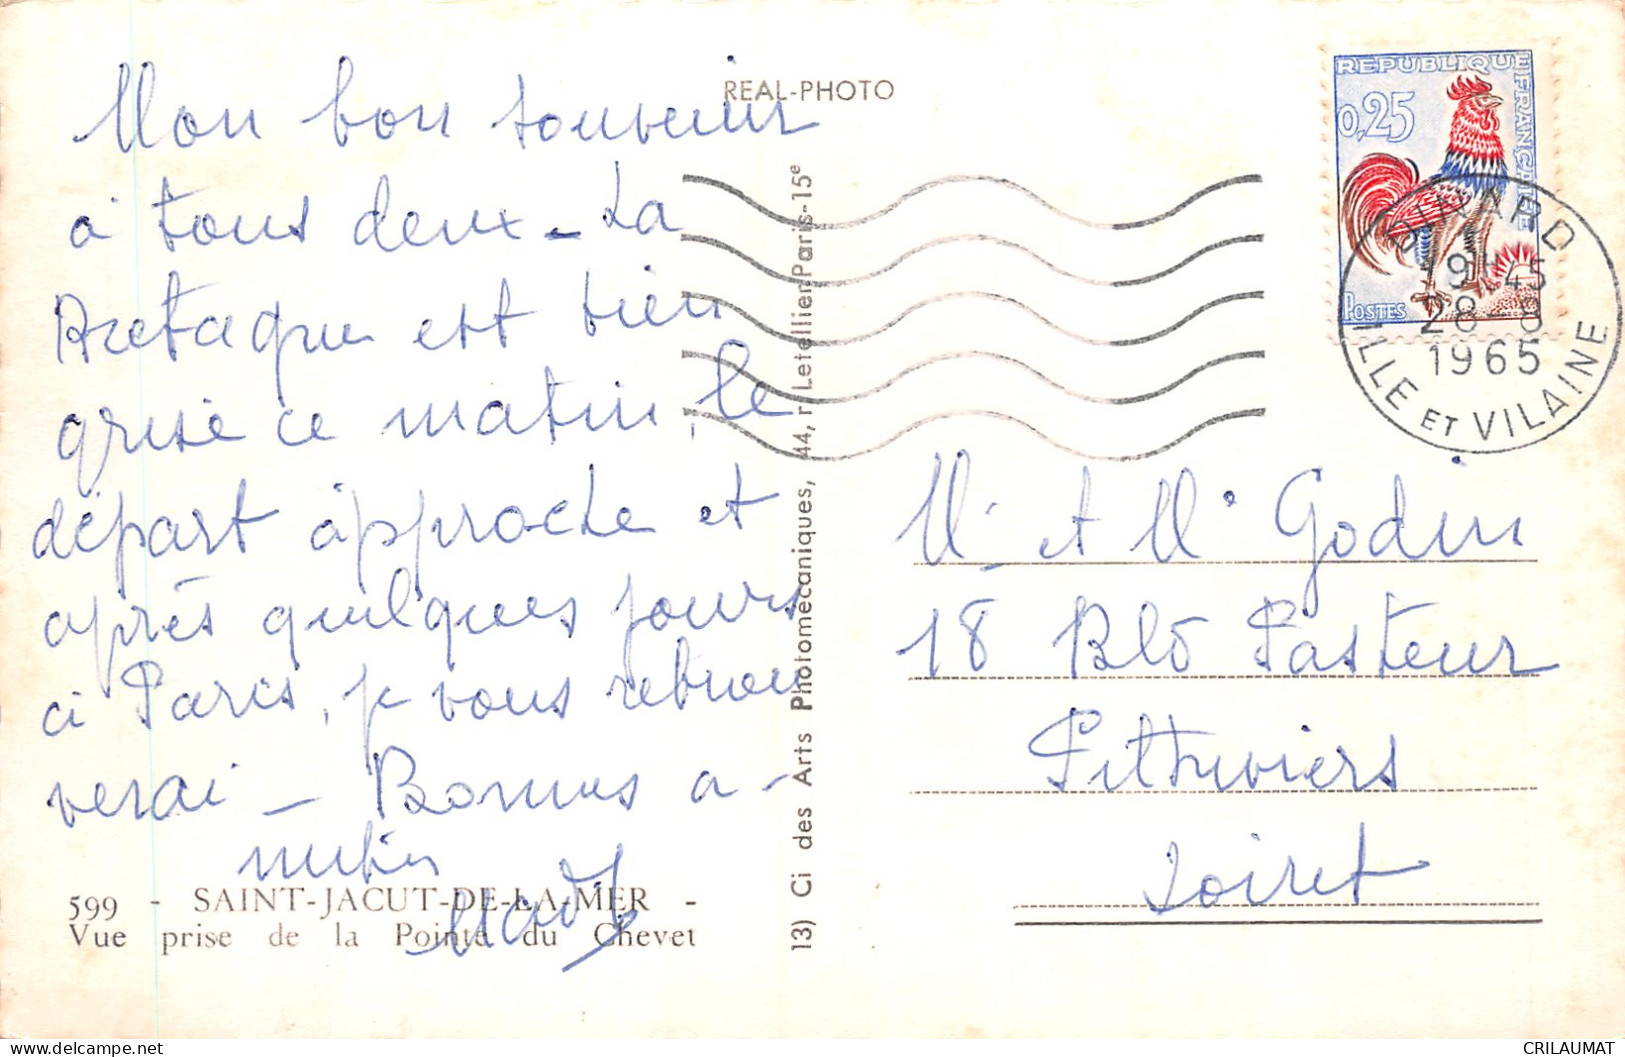 Mon bon souvenir
à tous deux - La
Bretagne est bien
grise ce matin, le
départ approche et
après quelques jours
à Paris, je vous
verai - Bonnes a-
mitiés
599 - SAINT-JACUT-DE-LA-MER -
Vue prise de la Pointe du Chevet
REAL-PHOTO
13) Ci des Arts Photomecaniques, 44, r. Letellier Paris-15e
REPUBLIQUE FRANÇAISE
0,25
POSTES
DINARD
19H45
28-8
1965
ILLE ET VILAINE
Mr et Me Godin
18 Bld Pasteur
Pithiviers
Loiret
CRILAUMAT